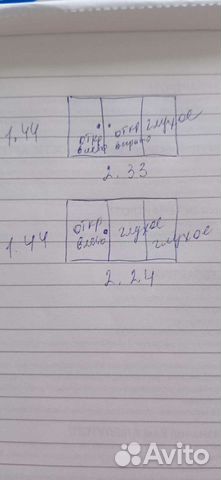 1.44
откр влево
откр вправо
глухое
2.33
1.44
откр влево
глухое
глухое
2.24
Avito